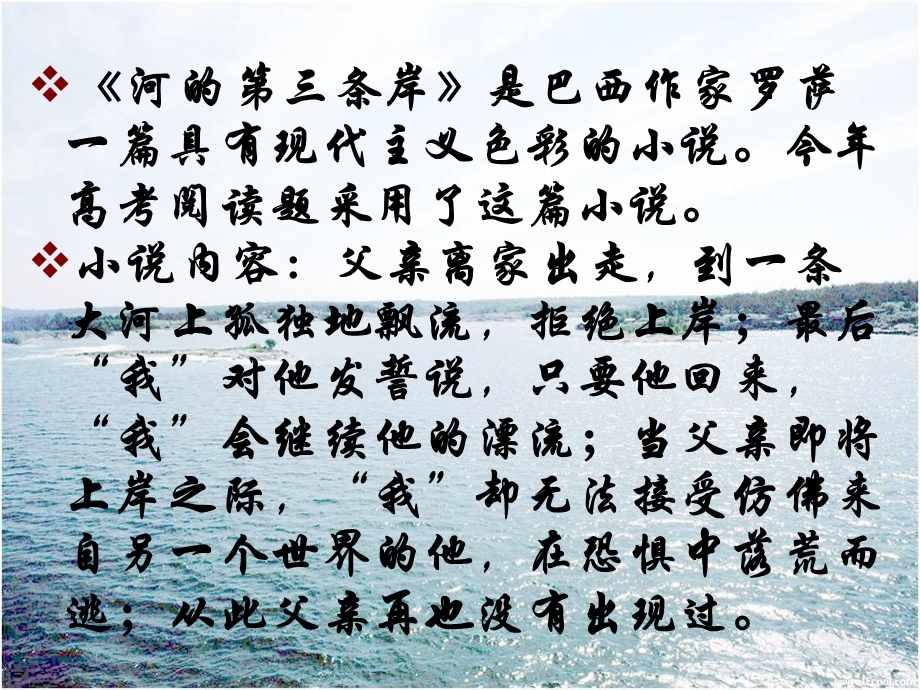 ❖《河的第三条岸》是巴西作家罗萨
一篇具有现代主义色彩的小说。今年
高考阅读题采用了这篇小说。
❖小说内容：父亲离家出走，到一条
大河上孤独地飘流，拒绝上岸；最后
“我”对他发誓说，只要他回来，
“我”会继续他的漂流；当父亲即将
上岸之际，“我”却无法接受仿佛来
自另一个世界的他，在恐惧中落荒而
逃；从此父亲再也没有出现过。